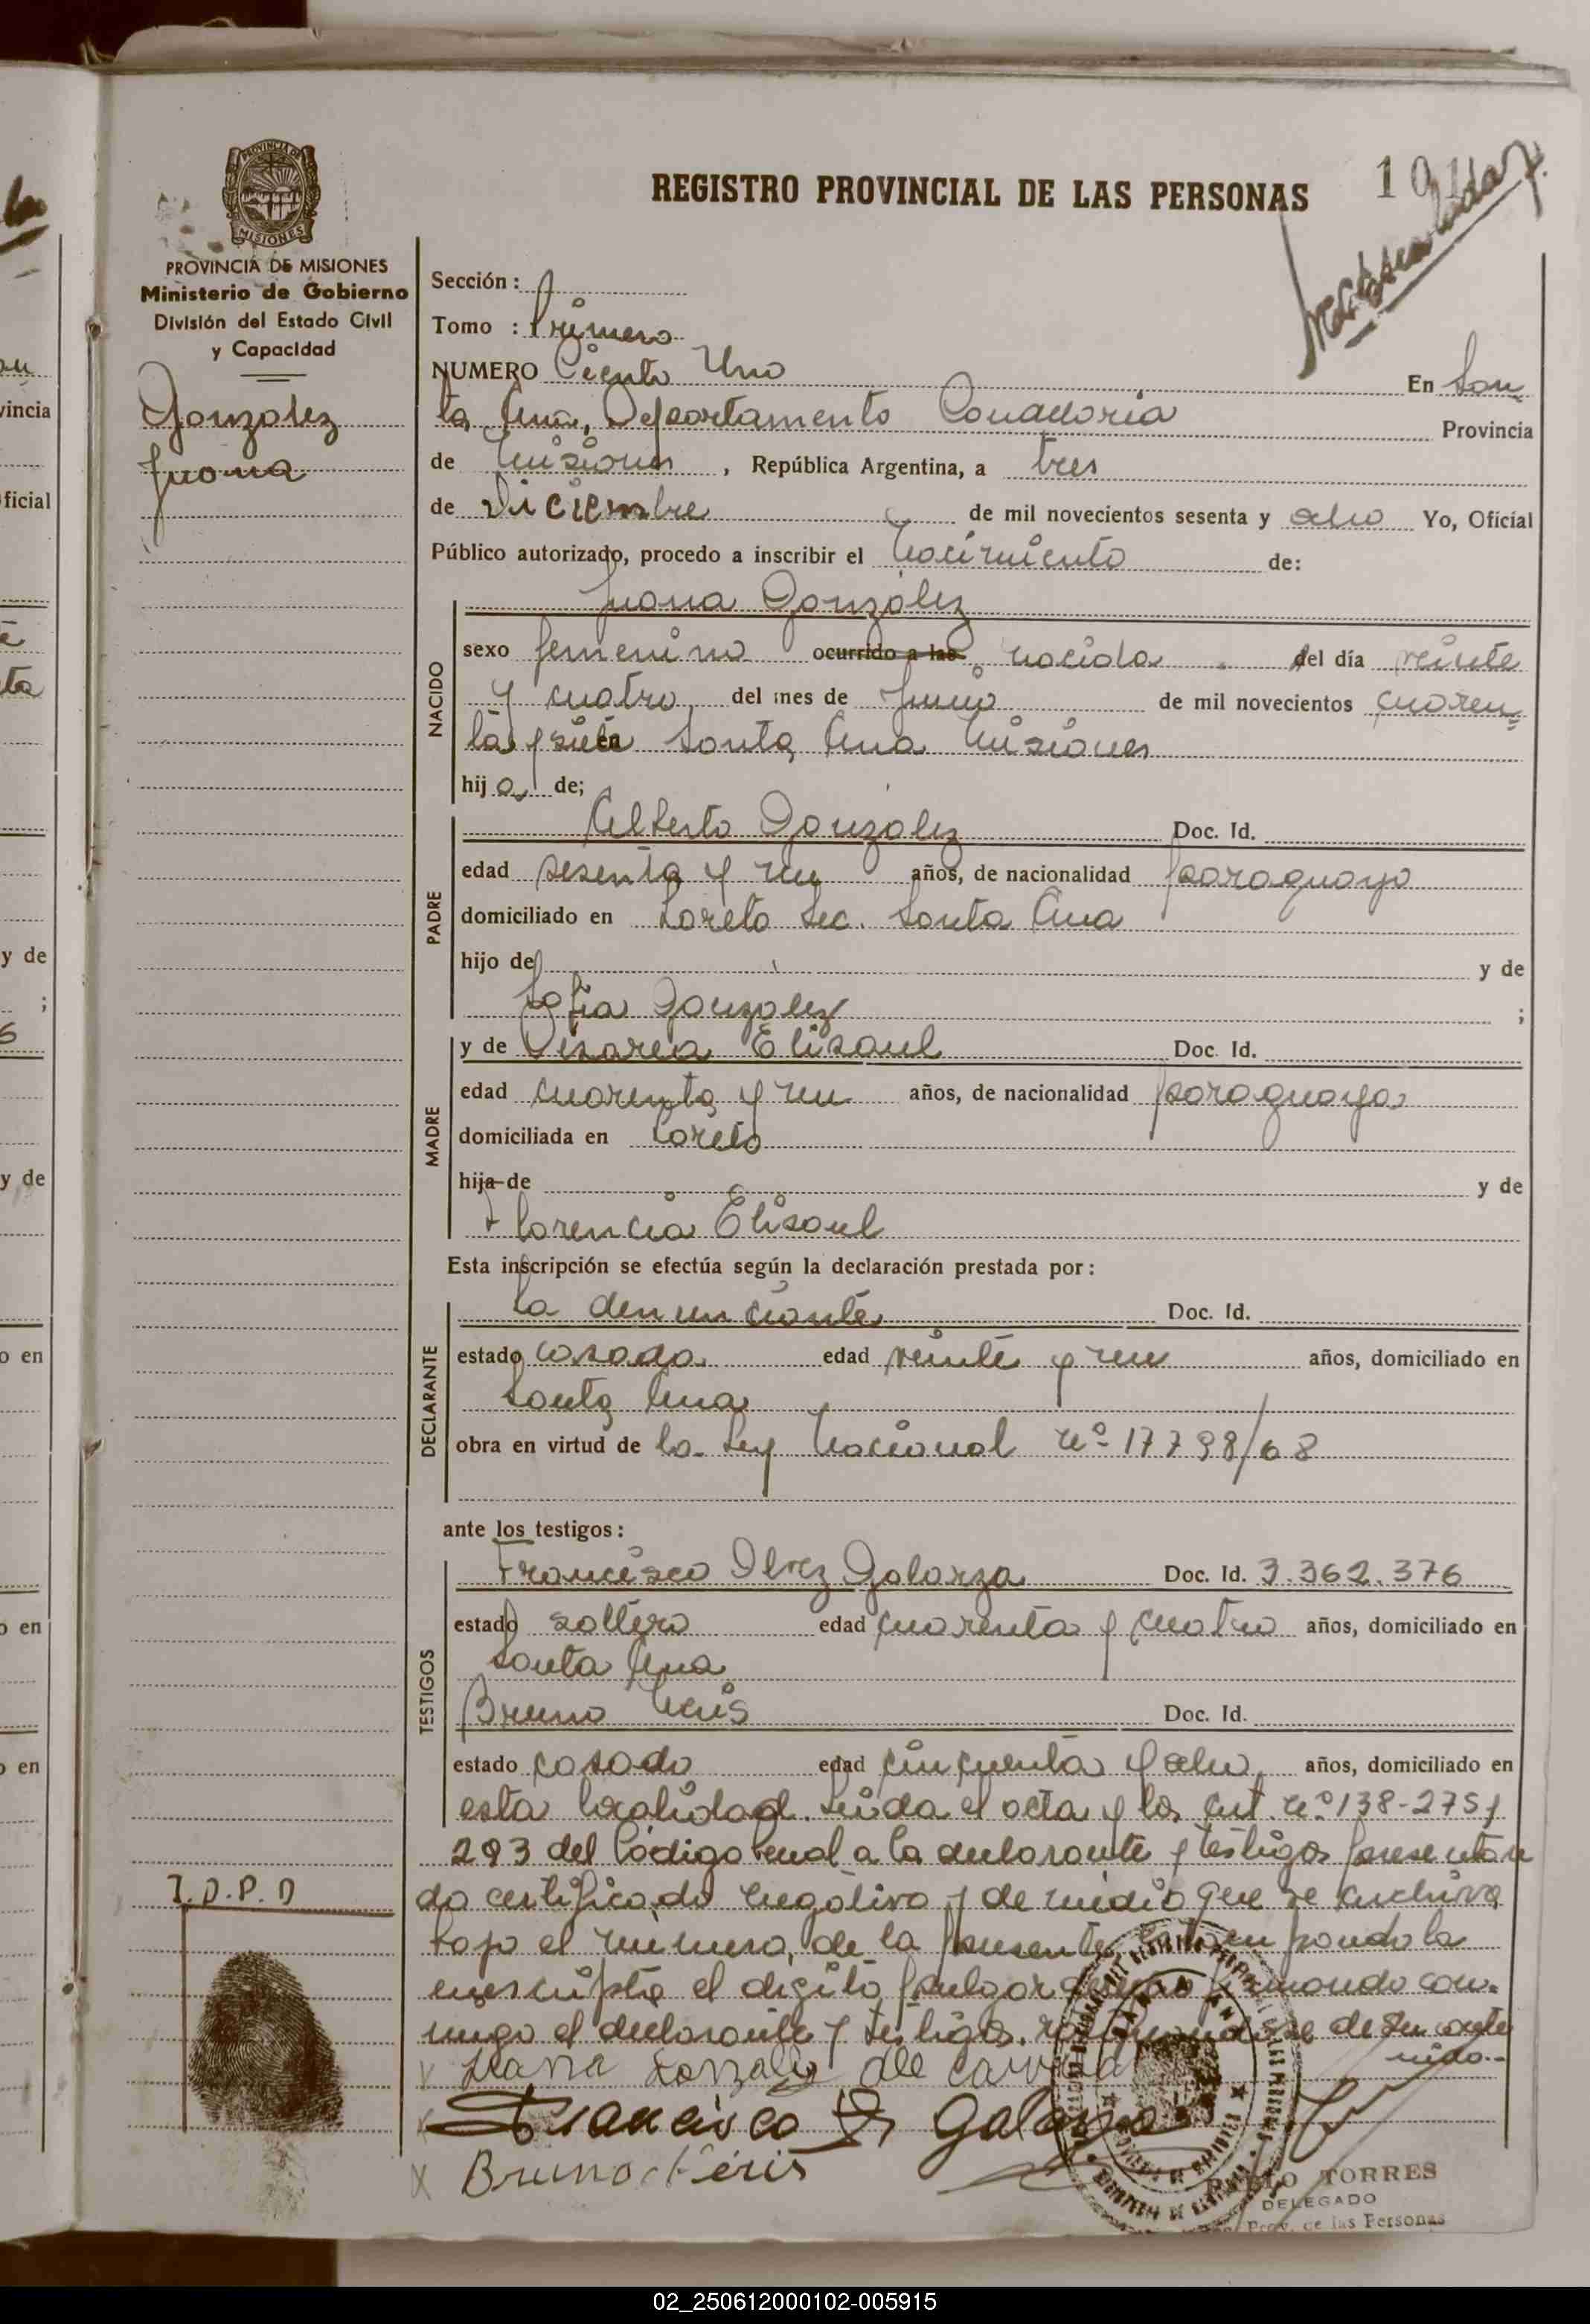 REGISTRO PROVINCIAL DE LAS PERSONAS
101
PROVINCIA DE MISIONES
PROVINCIA DE MISIONES
Ministerio de Gobierno
División del Estado Civil
y Capacidad
Gonzalez
Juana
Sección:
Tomo : Primero
NUMERO Ciento Uno En San
ta Ana, Departamento Candelaria Provincia
de Misiones, República Argentina, a tres
de Diciembre de mil novecientos sesenta y ocho Yo, Oficial
Público autorizado, procedo a inscribir el Nacimiento de:
NACIDO
Juana González
sexo femenino ocurrido a las nacida del día veinte
y cuatro del mes de Junio de mil novecientos cuaren
ta y siete Santa Ana Misiones
hija de;
PADRE
Alberto Gonzalez Doc. Id.
edad sesenta y un años, de nacionalidad paraguayo
domiciliado en Loreto Sec. Santa Ana
hijo de y de
Sofia Gonzalez ;
MADRE
y de Cesarea Elisaul Doc. Id.
edad cuarenta y un años, de nacionalidad paraguaya
domiciliada en Loreto
hija de y de
Florencia Elisaul
Esta inscripción se efectúa según la declaración prestada por:
DECLARANTE
La denunciante Doc. Id.
estado casada edad veinte y un años, domiciliado en
Santa Ana
obra en virtud de la Ley Nacional nº 17798/68
ante los testigos:
TESTIGOS
Francisco Galarza Doc. Id. 3.362.376
estado soltero edad cuarenta y cuatro años, domiciliado en
Santa Ana
Bruno Doc. Id.
estado casado edad cincuenta y ocho años, domiciliado en
esta localidad. Leida el acta y los art. nº 138-275 y
293 del Código Penal a la declarante y testigos presentan
do certificado negativo y de medio que se archiva
bajo el número de la presente, la
enscripta el digito pulgar firmando con-
migo el declarante y testigos. de su conte
nido.-
I.D.P.D
Gonzalez de
Francisco Galarza
Bruno
PABLO TORRES
DELEGADO
Prov. de las Personas
02_250612000102-005915